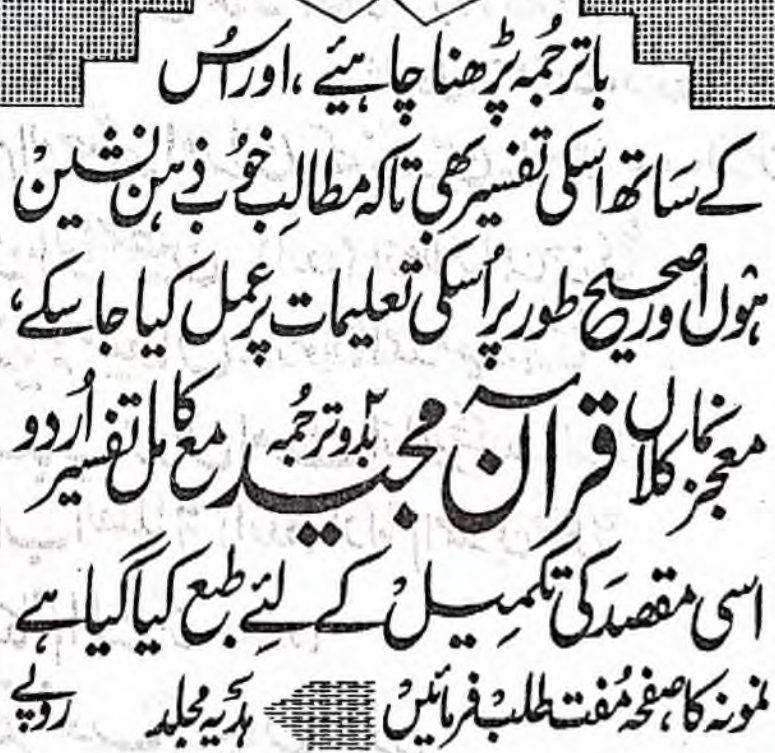 باترجُمہ پڑھنا چاہئیے ، اور اُس
کے سَاتھ اسکی تفسیر بھی تاکہ مطالِب خوُب ذہن نشین
ہوُں اور صحیح طور پر اُسکی تعلیمات پر عمل کیا جا سکے،
معجز نما کلاں قرآن مجید بدو ترجُمہ مع کامل تفسیر اُردو
اسی مقصَد کی تکمیل کے لئے طبع کیا گیا ہے
نمونہ کا صفحہ مُفت طلب فرمائیں ہدیۂ مجلد روپے